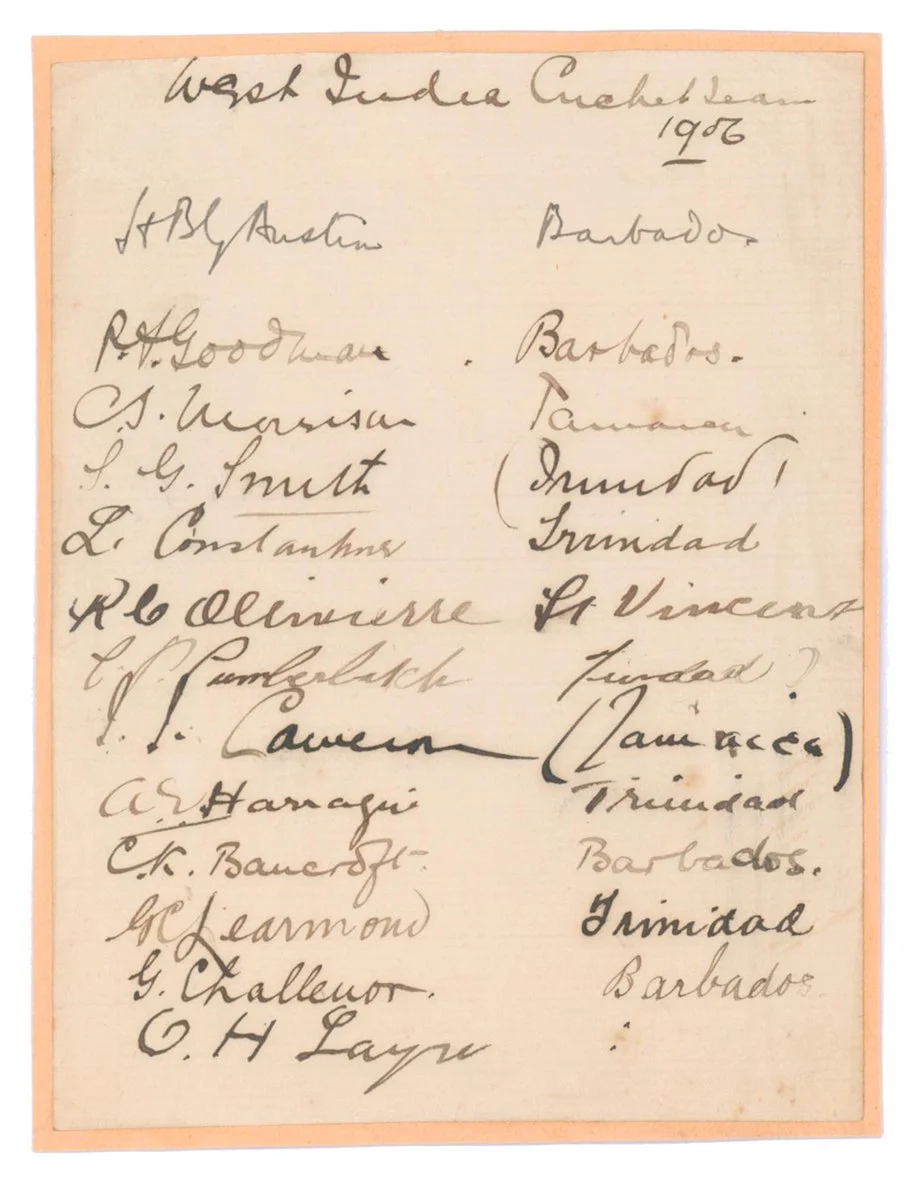 West India Cricket Team
1906
H B G Austin Barbados
P.A. Goodman . Barbados.
C.S. Morrison Jamaica
S. G. Smith (Trinidad)
L. Constantine Trinidad
R C Ollivierre St Vincent
C P Cumberbatch Trinidad
J. J. Cameron (Jamaica)
A.E. Harragin Trinidad
C.K. Bancroft Barbados.
G C Learmond Trinidad
G. Challenor. Barbados
O. H Layne :